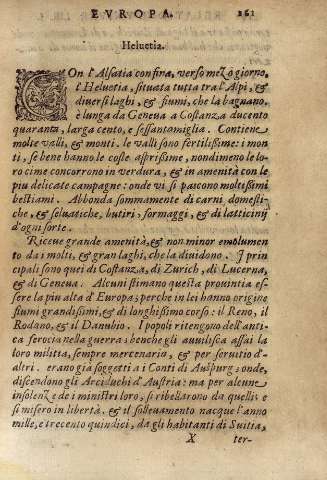 EVROPA. 161
Heluetia.
COn l'Alsatia confina, verso mezò giorno,
l'Heluetia, situata tutta tra l'Alpi, &
diuersi laghi, & fiumi, che la bagnano.
è lunga da Geneua a Costanza ducento
quaranta, larga cento, e sessantamiglia. Contiene
molte valli, & monti. le valli sono fertilissime: i mon
ti, se bene hanno le coste asprissime, nondimeno le lo-
ro cime concorrono in verdura, & in amenità con le
piu delicate campagne: onde vi si pascono moltissimi
bestiami. Abbonda sommamente di carni, domesti-
che, & seluatiche, butiri, formaggi, & di latticinij
d'ogni sorte.
Riceue grande amenità, & non minor emolumento
da i molti, & gran laghi, che la diuidono. I prin
cipali sono quei di Costanza, di Zurich, di Lucerna,
& di Geneua. Alcuni stimano questa prouintia esse-
re la piu alta d'Europa; perche in lei hanno origine
fiumi grandissimi, & di longhissimo corso: il Reno, il
Rodano, & il Danubio. I popoli ritengono dell'anti-
ca ferocia nella guerra; benche gli auuilisca assai la
loro militia, sempre mercenaria, & per seruitio d'-
altri. erano già soggetti a i Conti di Auspurg: onde,
discendono gli Arciduchi d'Austria: ma per alcune
insolenze de i ministri loro, si ribellarono da quelli: e
si misero in libertà. & il solleuamento nacque l'anno
mille, e trecento quindici, da gli habitanti di Suitia,
X ter-